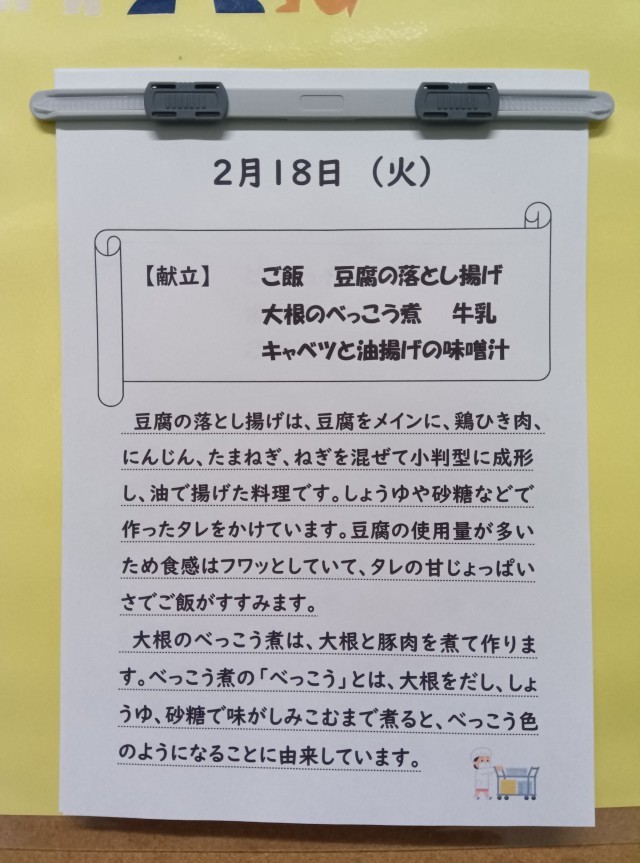 2月18日（火）
【献立】 ご飯 豆腐の落とし揚げ
大根のべっこう煮 牛乳
キャベツと油揚げの味噌汁
豆腐の落とし揚げは、豆腐をメインに、鶏ひき肉、
にんじん、たまねぎ、ねぎを混ぜて小判型に成形
し、油で揚げた料理です。しょうゆや砂糖などで
作ったタレをかけています。豆腐の使用量が多い
ため食感はフワッとしていて、タレの甘じょっぱい
さでご飯がすすみます。
大根のべっこう煮は、大根と豚肉を煮て作りま
す。べっこう煮の「べっこう」とは、大根をだし、しょ
うゆ、砂糖で味がしみこむまで煮ると、べっこう色
のようになることに由来しています。